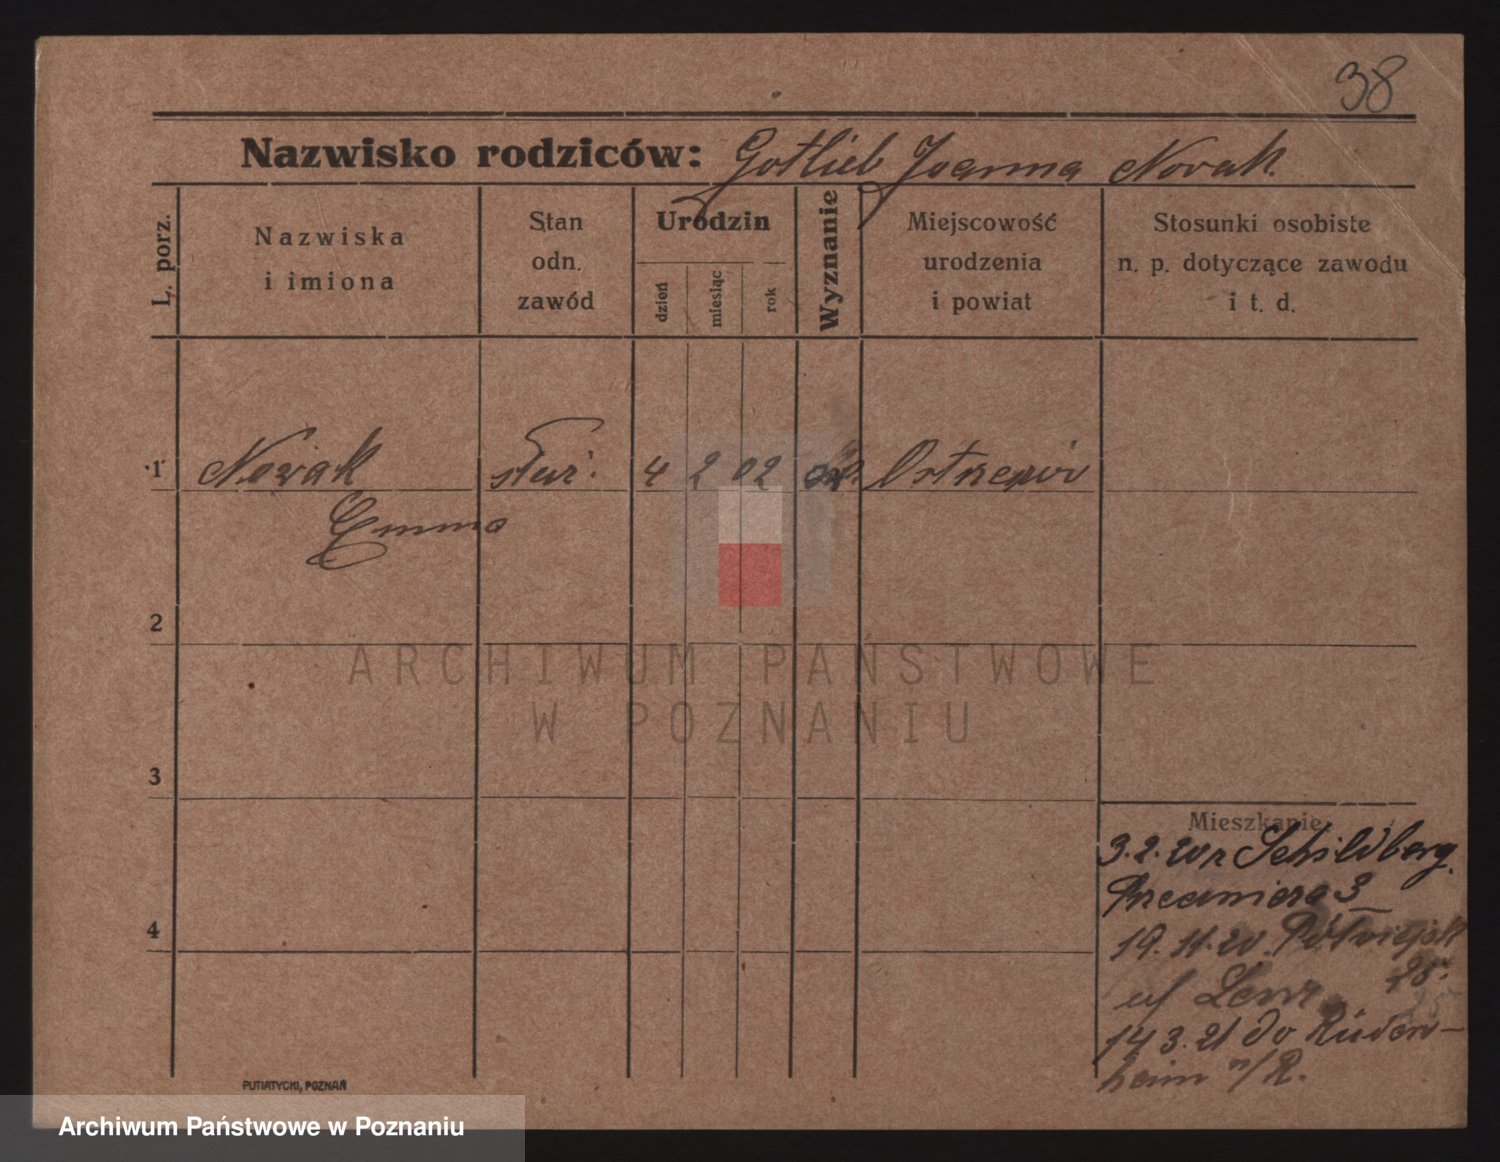 38
Nazwisko rodziców: Gotlieb Joanna Novak.
L. porz.
Nazwiska
i imiona
Stan
odn.
zawód
Urodzin
dzień
miesiąc
rok
Wyznanie
Miejscowość
urodzenia
i powiat
Stosunki osobiste
n. p. dotyczące zawodu
i t. d.
1 Nowak służ. 4 2 02
Emma
2
ARCHIWUM PAŃSTWOWE
W POZNANIU
3
Mieszkanie
3.2.20 z Schildberg.
3
4
19.11.20. Półwiejsk
25.
14 3.21 do Rüdes-
heim a/R.
PUTIATYCKI, POZNAŃ
Archiwum Państwowe w Poznaniu